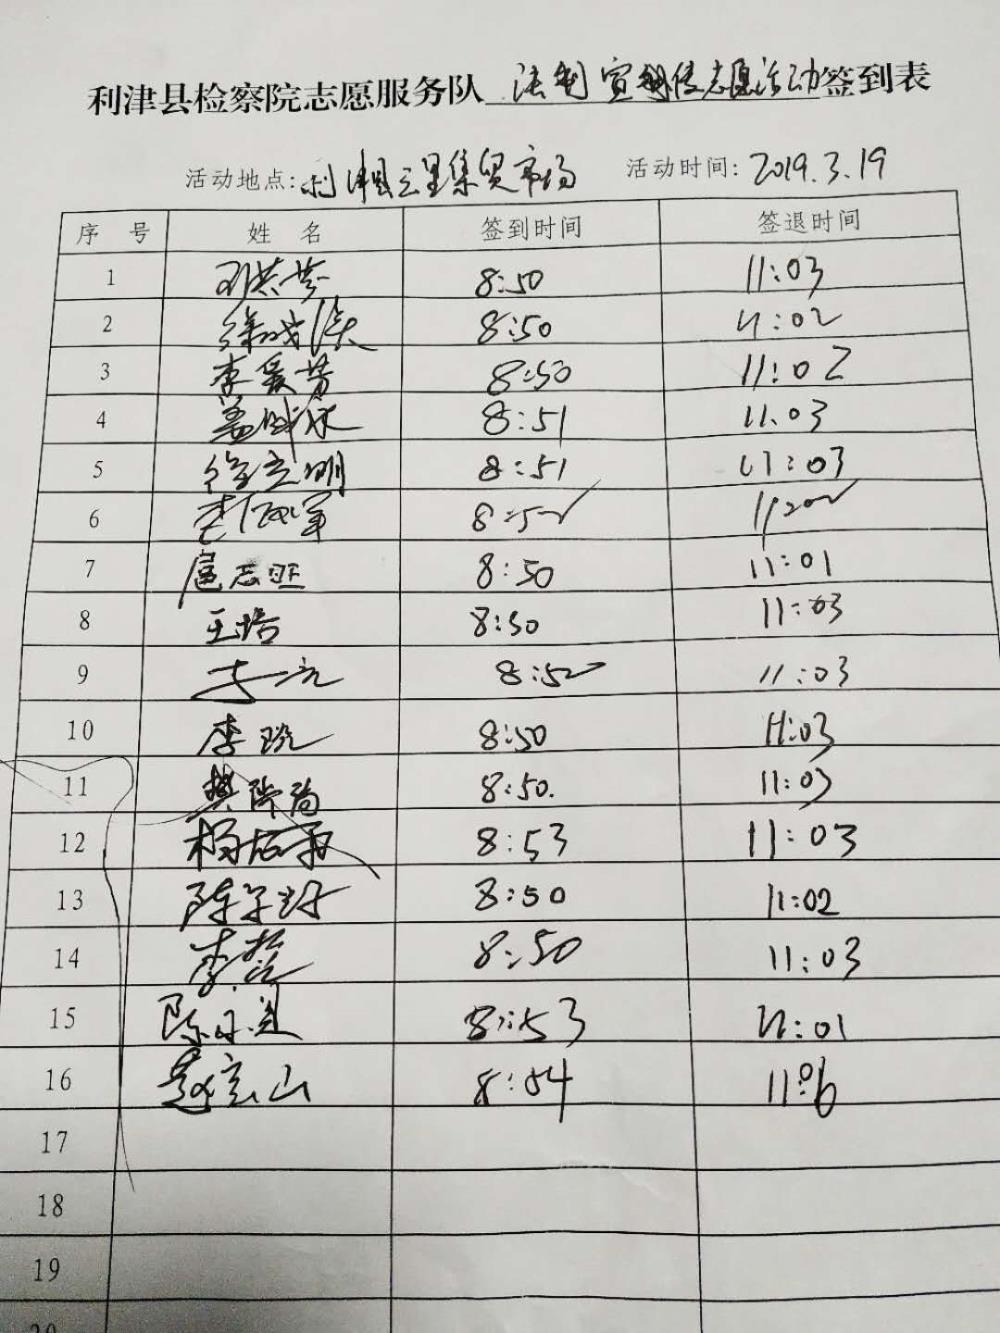 利津县检察院志愿服务队 法制宣传志愿活动签到表
活动地点: 利津县三里集贸市场 活动时间: 2019.3.19
序 号 姓 名 签到时间 签退时间
1 8:50 11:03
2 8:50 11:02
3 李爱芳 8:50 11:02
4 盖 8:51 11.03
5 徐立明 8:51 11:03
6 李 8:52
7 扈志旺 8:50 11:01
8 王培 8:50 11:03
9 8:52 11:03
10 李 8:50 11:03
11 樊 8:50. 11:03
12 杨 8:53 11:03
13 陈 8:50 11:02
14 李 8:50 11:03
15 陈 8:53 11:01
16 赵玄山 8:54 11:06
17
18
19
20